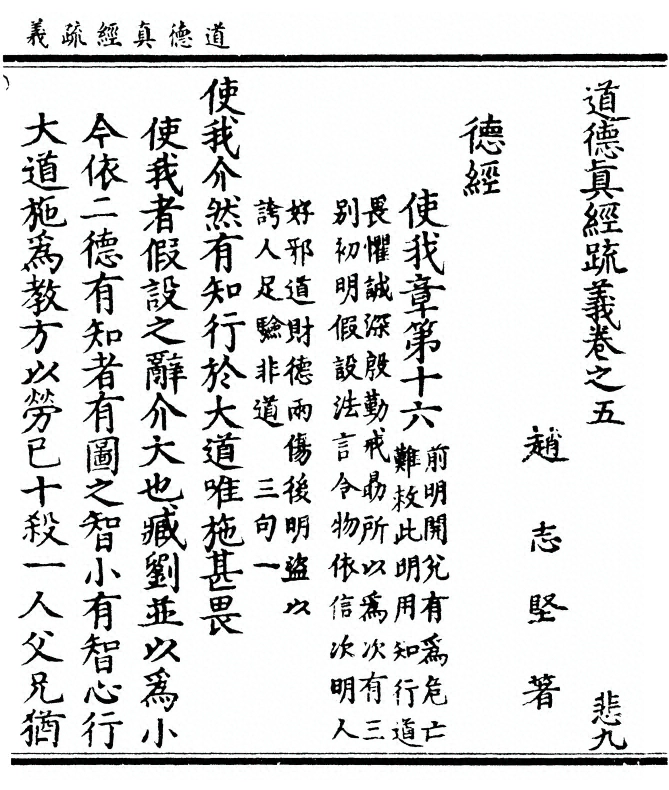 道德真經疏義
道德真經疏義卷之五 悲九
趙志堅著
德經
使我章第十六
前明開兊有為危亡
難救此明用知行道
畏懼誠深殷勤戒勗所以為次有三
別初明假設法言令物依信次明人
好邪道財德兩傷後明盜以
誇人足驗非道 三句一
使我介然有知行於大道唯施甚畏
使我者假設之辭介大也臧劉並以為小
今依二德有知者有圖之智小有智心行
大道施爲教方以勞已十殺一人父兄猶